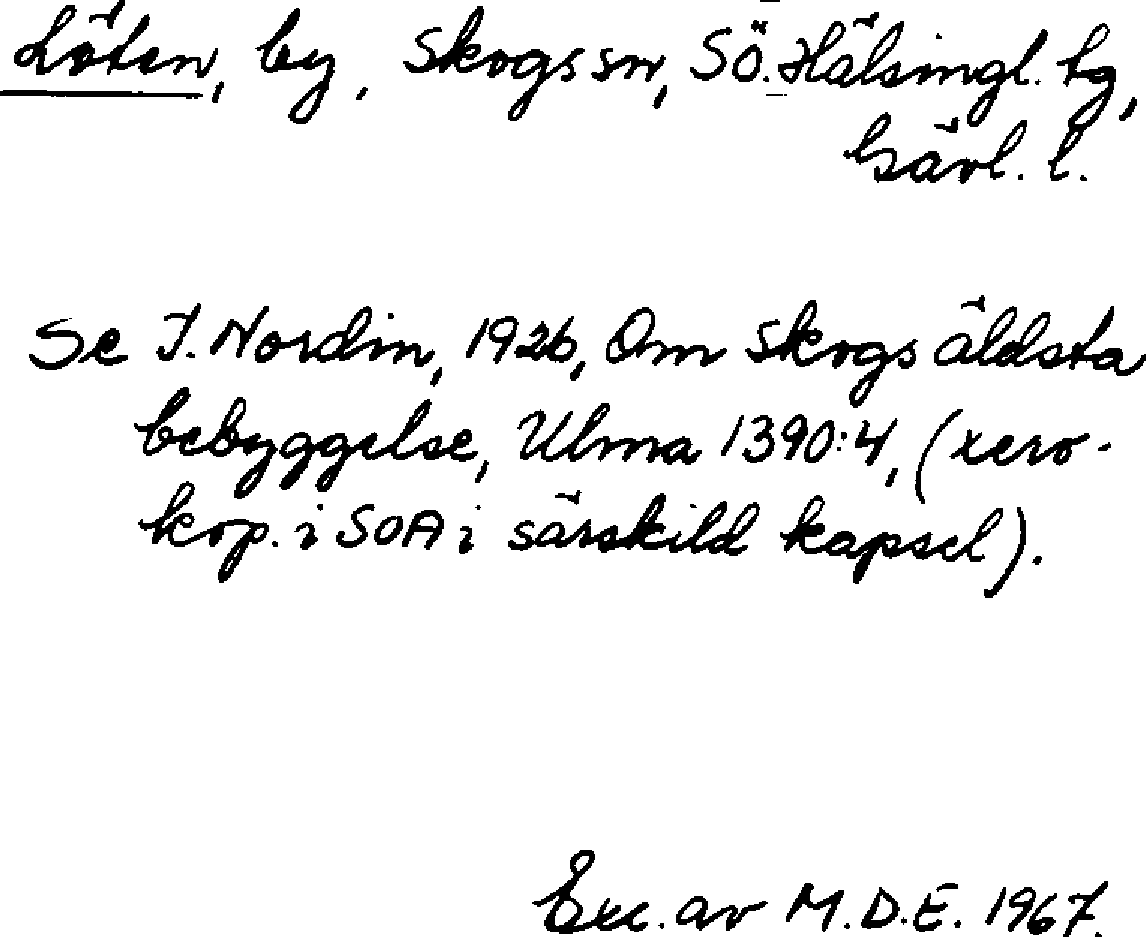 Löten, by, Skogs sn, Sö. Hälsingl. tg,
Gävl. l.
Se J. Nordin, 1926, Om Skogs äldsta
bebyggelse, Ulma 1390:4, (xero-
kop. i SOA i särskild kapsel).
Exc. av M.D.E. 1967.